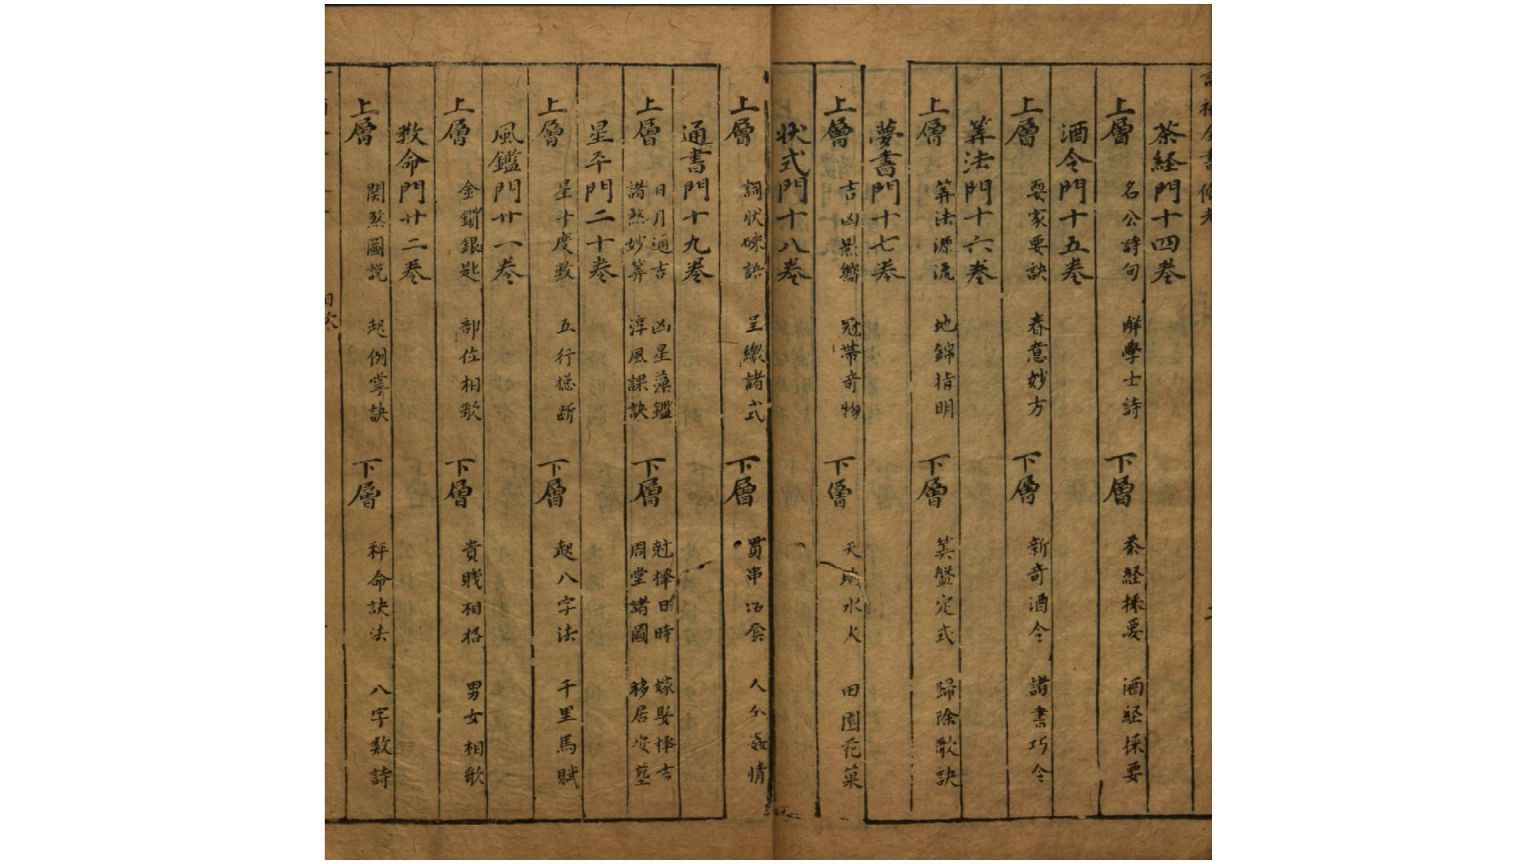 茶経門十四巻
上層 名公詩句 解學士詩 下層 茶経採要 酒経採要
酒令門十五巻
上層 耍家要訣 春意妙方 下層 新奇酒令 諸書巧令
筭法門十六巻
上層 筭法源流 地錦指明 下層 筭盤定式 歸除歌訣
夢書門十七巻
上層 吉凶 冠帶奇物 下層 天地水火 田園花菓
狀式門十八巻
上層 詞狀硃語 呈繳諸式 下層 貫串活套 人介姦情
通書門十九巻
上層 日月通吉 諸煞妙筭 凶星藻鑑 淳風課訣 下層 尅擇日時 周堂諸圖 嫁娶擇吉 移居安塟
星平門二十巻
上層 星十度数 五行摠断 下層 起八字法 千里馬賦
風鑑門廿一巻
上層 金鎖銀匙 部位相歌 下層 貴賎相格 男女相歌
数命門廿二巻
上層 関煞圖説 起例掌訣 下層 秤命訣法 八字数詩
目次